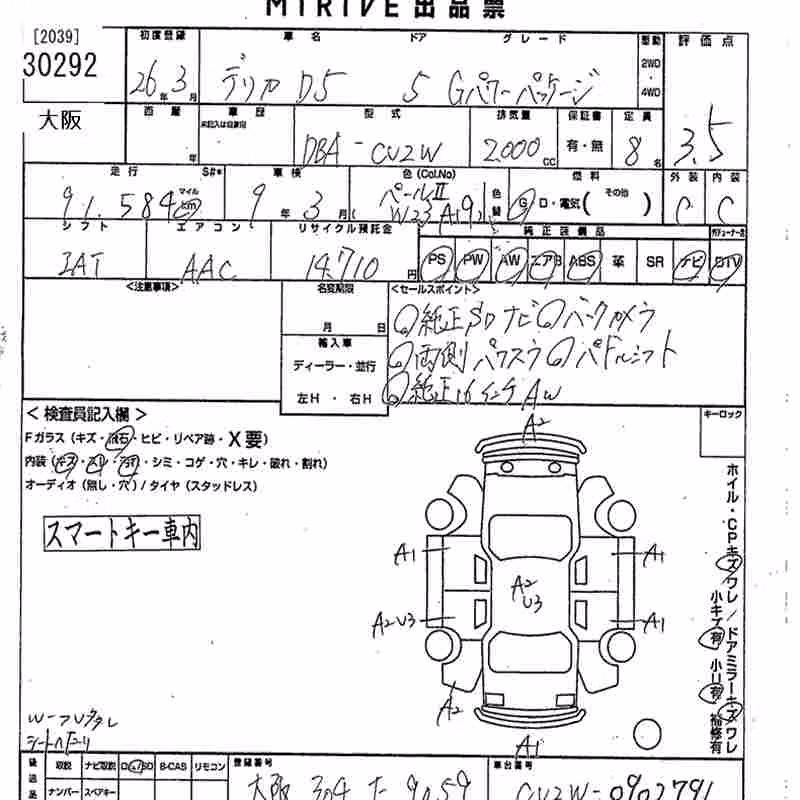 MIRIVE出品票
[2039]
30292
大阪
初度登録
26年3月
車名 ドア グレード
デリカ D5 5 Gパワーパッケージ
駆動
2WD
・
4WD
評価点
3.5
西暦
年
車歴
未記入は自家用
型式
DBA-CV2W
排気量
2000cc
保証書
有・無
定員
8名
走行 S#*
91,584 マイル km
車検
9年3月(
色(Col.No)
パールII
W23 A(9)
色替
燃料
G・D・電気( その他 )
外装
C
内装
C
シフト
IAT
エアコン
AAC
リサイクル預託金
14,710円
純正装備品
PS PW AW エアB ABS 革 SR ナビ DTV
<注意事項>
名変期限
月 日
輸入車
ディーラー・並行
左H・右H
<セールスポイント>
◎純正SDナビ◎バックカメラ
◎両側パワスラ◎パドルシフト
◎純正16インチAW
キーロック
<検査員記入欄>
Fガラス(キズ・飛石・ヒビ・リペア跡・X要)
内装(キズ・スレ・汚れ・シミ・コゲ・穴・キレ・破れ・割れ)
オーディオ(無し・穴)/タイヤ(スタッドレス)
スマートキー車内
A2
A1 A1
A2
U3
A2U3 A1
A2
A1
ホイル・CPキズワレ/ドアミラーキズワレ
小キズ有 小U有 補修有
後送品
取説 ナビ取説 B-CAS リモコン
ナンバー スペアキー
登録番号
大阪 304 た 9059
車台番号
CV2W-0902791